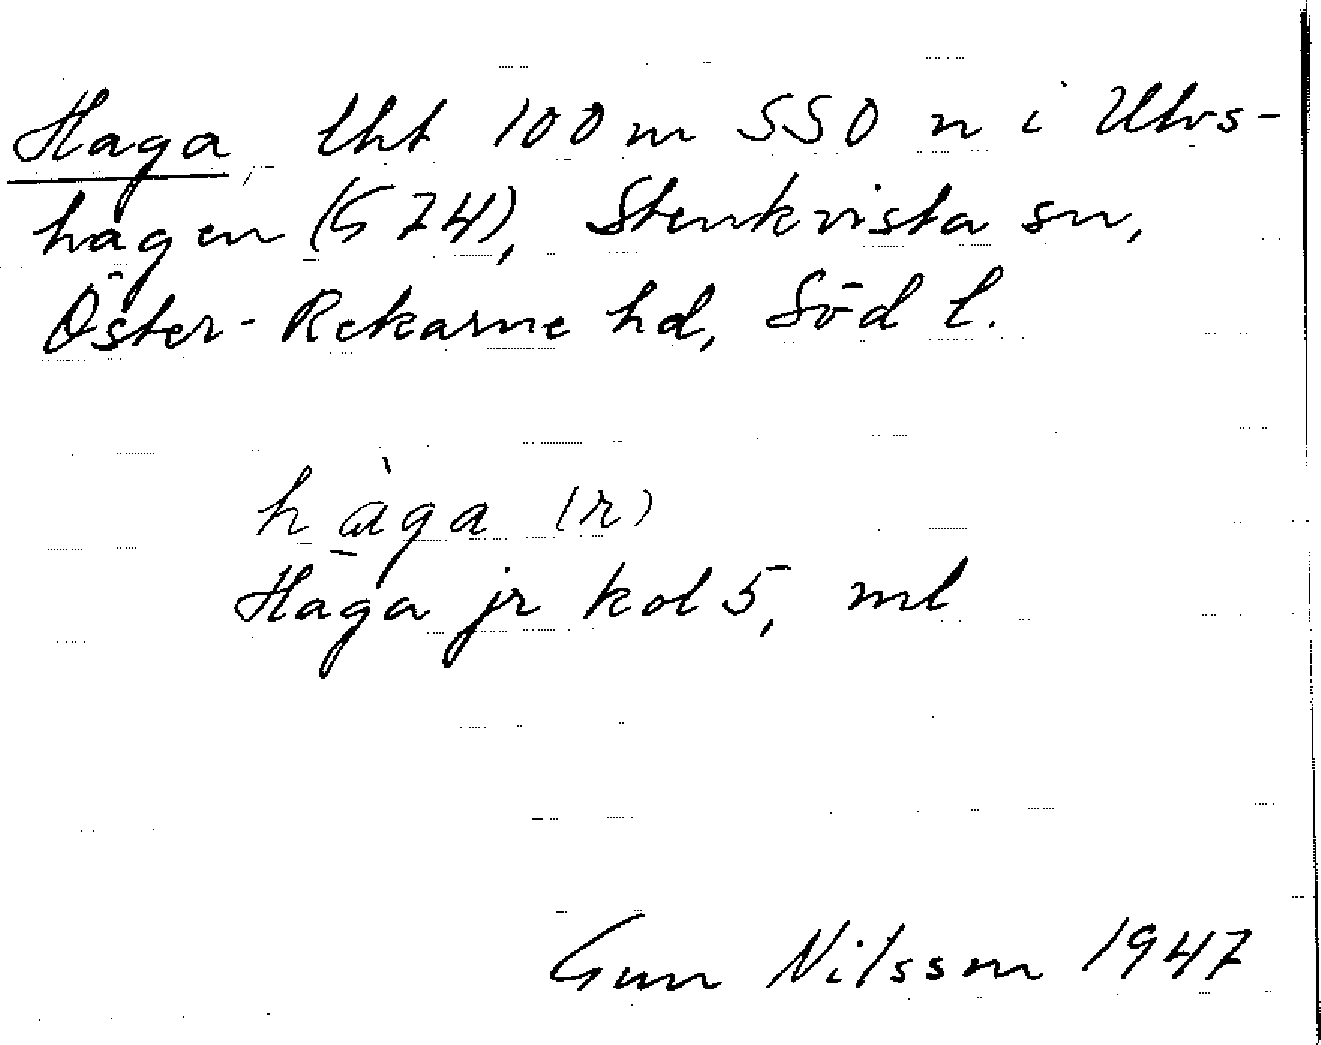 Haga, lht 100 m SSO n i Ulvs-
hagen (G 74), Stenkvista sn,
Öster-Rekarne hd, Söd l.
hàga (r)
Haga jr kol 5, ml
Gun Nilsson 1947